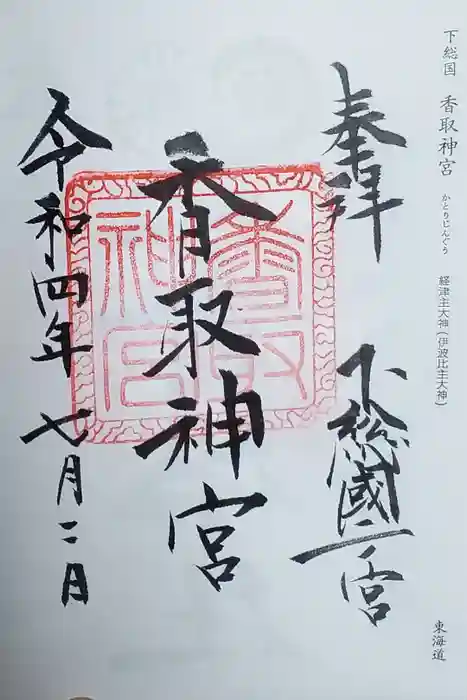 下総国 香取神宮 かとりじんぐう 経津主大神(伊波比主大神)
東海道
奉拝
下総國一宮
香取神宮
香取神宮
令和四年七月二日